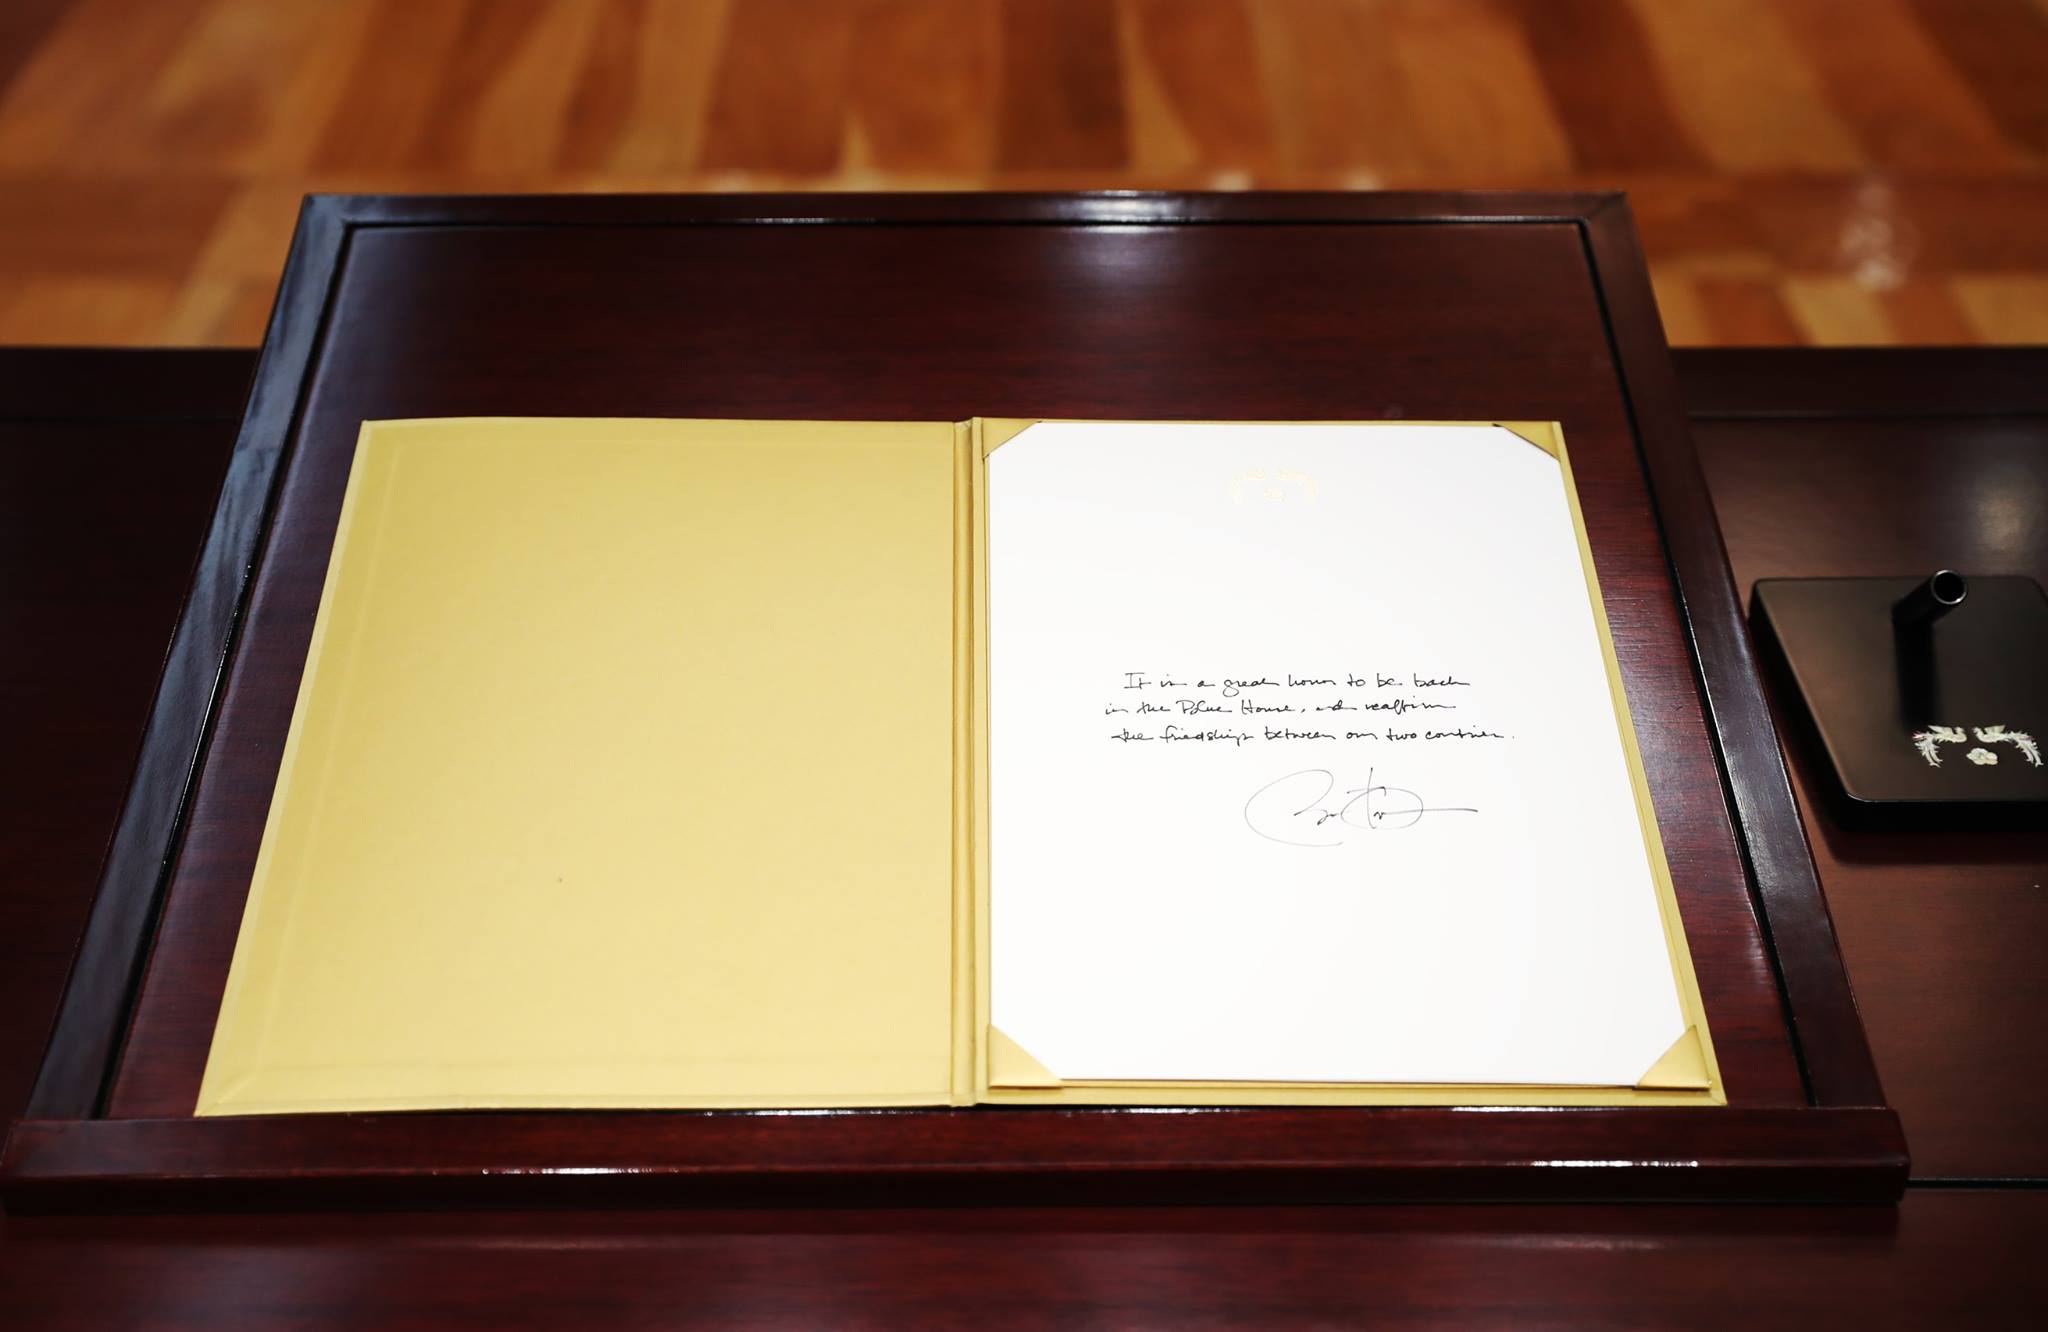 It is a great honor to be back
in the Blue House, and reaffirm
the friendship between our two countries.